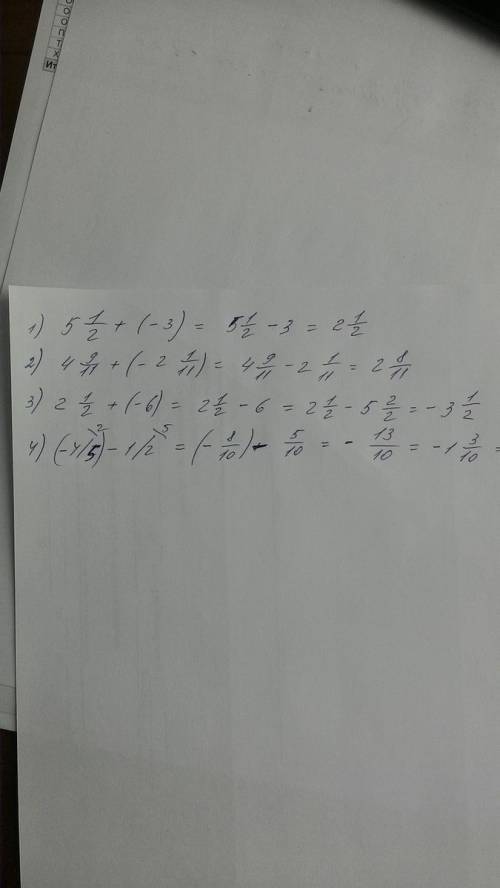 О
О
П
Т
Х
Ит
1) 5 1/2 + (-3) = 5 1/2 - 3 = 2 1/2
2) 4 9/11 + (-2 1/11) = 4 9/11 - 2 1/11 = 2 8/11
3) 2 1/2 + (-6) = 2 1/2 - 6 = 2 1/2 - 5 2/2 = -3 1/2
4) (-4/5\2) - 1/2\5 = (-8/10) - 5/10 = - 13/10 = -1 3/10 =